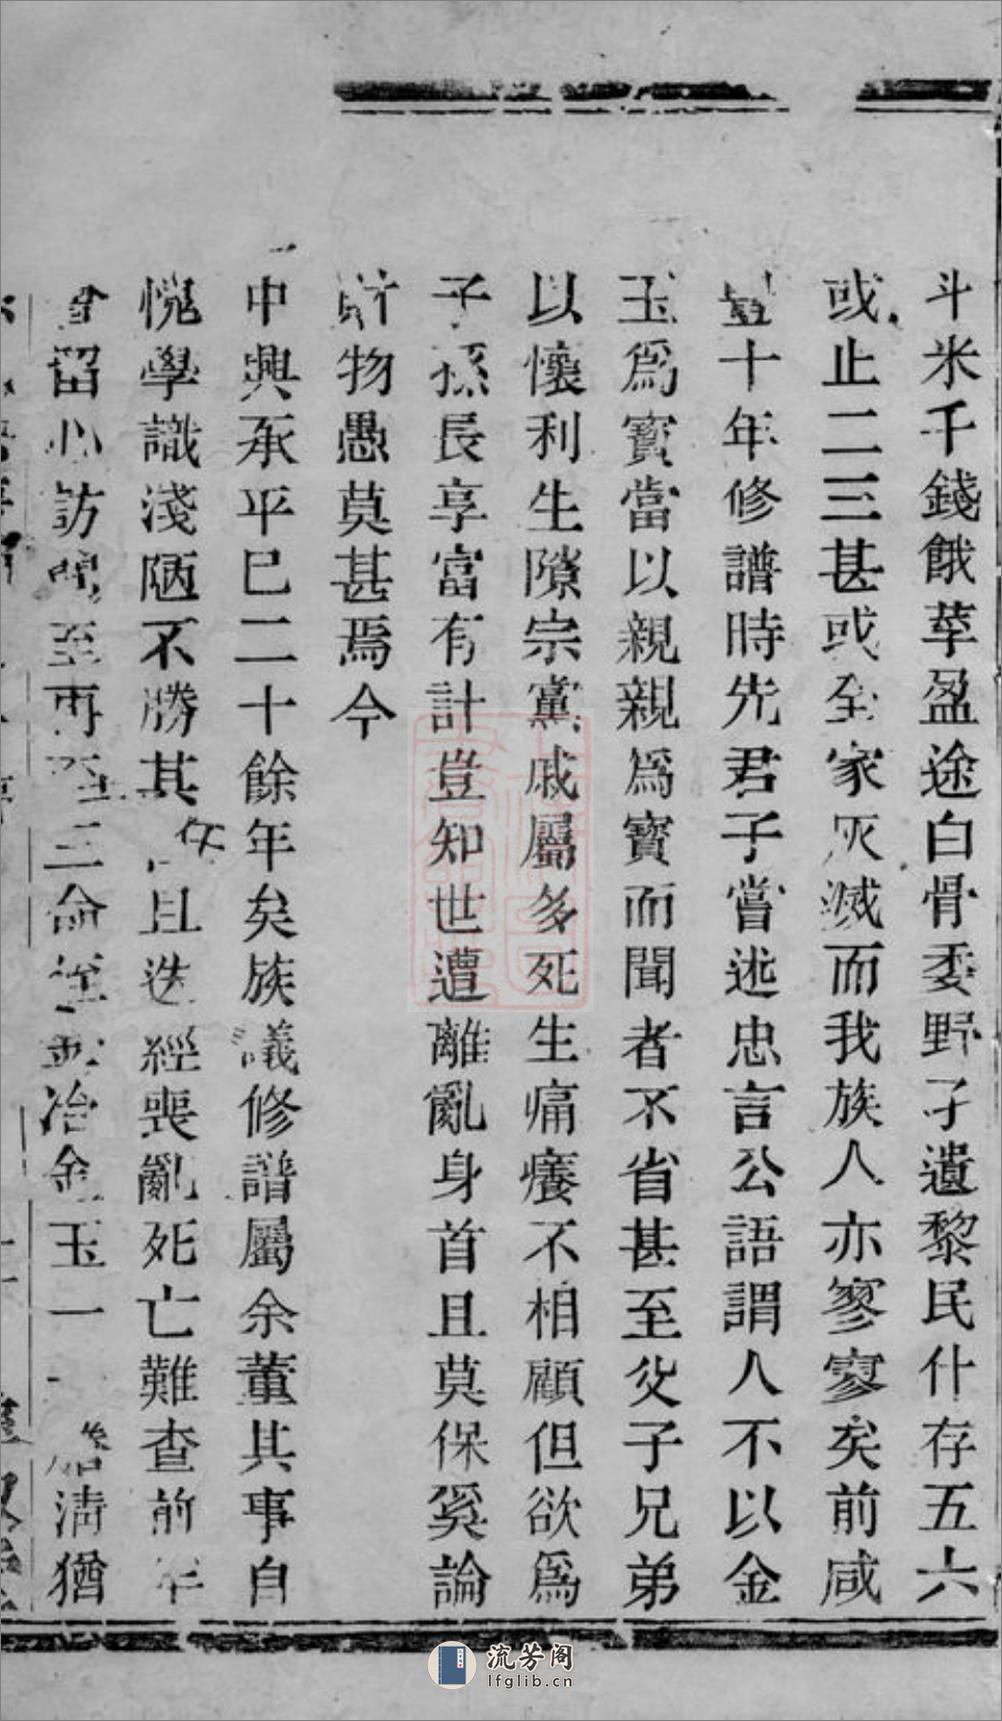 斗米千錢餓莩盈途白骨委野孑遺黎民什存五六
或止二三甚或至家灰滅而我族人亦寥寥矣前咸
豐十年修譜時先君子嘗述忠言公語謂人不以金
玉爲寳當以親親爲寳而聞者不省甚至父子兄弟
以懷利生隙宗黨戚屬多死生痛癢不相顧但欲爲
子孫長享富有計豈知世遭離亂身首且莫保奚論
財物愚莫甚焉今
中興承平已二十餘年矣族議修譜屬余董其事自
愧學識淺陋不勝其任且迭經喪亂死亡難查前年
會留心訪問至再至三命 冶金玉一 淸猶
流芳阁
lfglib.cn